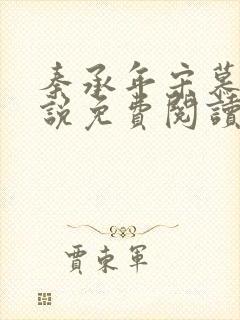 秦承年宋慕
說免費閱讀
賈東軍